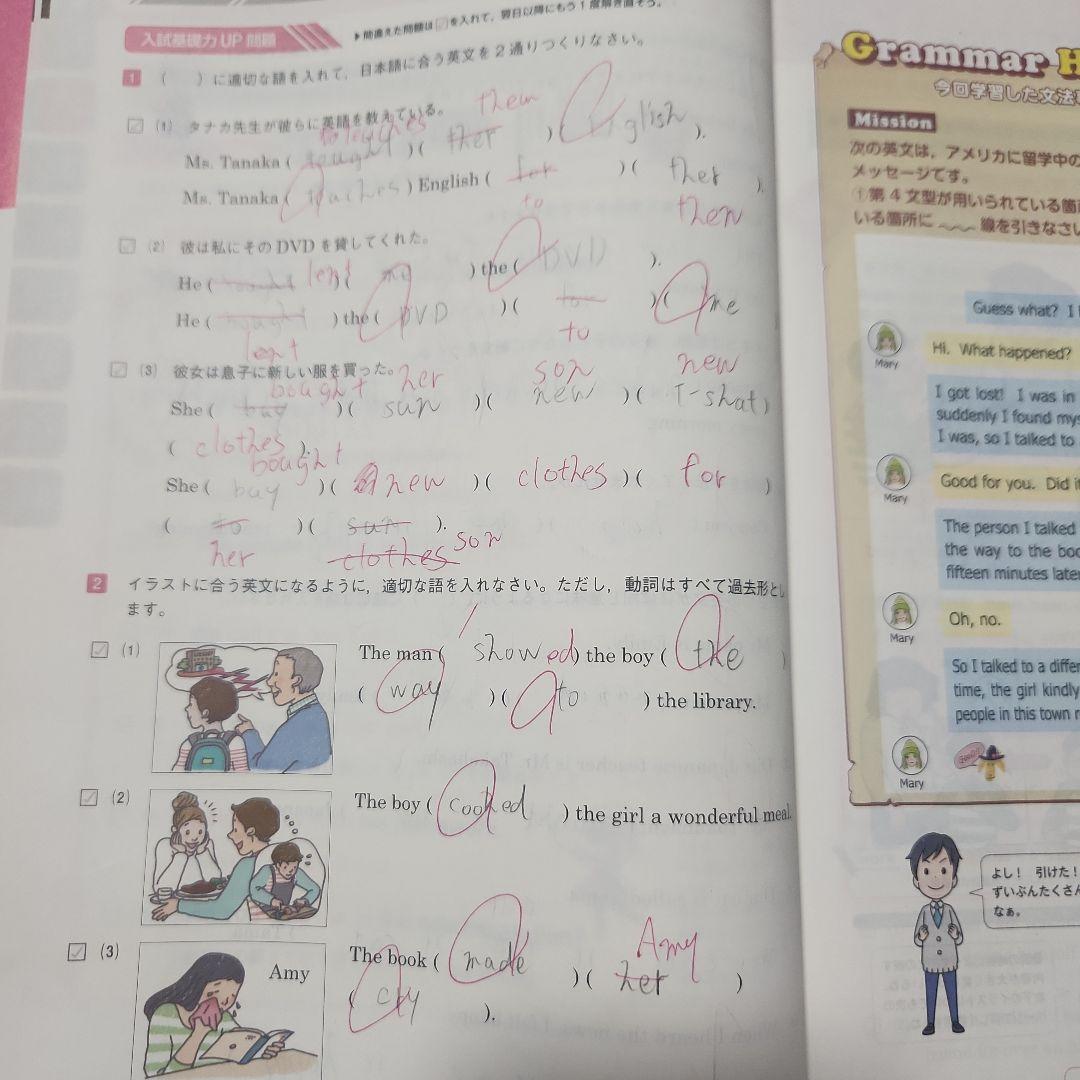 ▶間違えた問題は☑を入れて，翌日以降にもう1度解き直そう。
入試基礎力UP問題
1 （　）に適切な語を入れて，日本語に合う英文を2通りつくりなさい。
(1) タナカ先生が彼らに英語を教えている。
them
teaches
Ms. Tanaka ( taught )( ther )( English ).
Ms. Tanaka ( teaches ) English ( for )( ther ).
to them
(2) 彼は私にそのDVDを貸してくれた。
He ( lent )( me ) the ( DVD ).
He ( ) the ( DVD )( for )( me ).
lent to
(3) 彼女は息子に新しい服を買った。
bought her son new
She ( buy )( sun )( new )( T-shat )
( clothes ).
bought
She ( buy )( new )( clothes )( for )
( to )( sun ).
her clothes son
2 イラストに合う英文になるように，適切な語を入れなさい。ただし，動詞はすべて過去形とし
ます。
(1) The man ( showed ) the boy ( the )
( way )( to ) the library.
(2) The boy ( cooked ) the girl a wonderful meal.
(3) Amy
Amy
The book ( made )( her )
( cry ).
Grammar H
今回学習した文法
Mission
次の英文は，アメリカに留学中の
メッセージです。
①第4文型が用いられている箇
いる箇所に 線を引きなさい
Guess what? I
Mary
Hi. What happened?
I got lost! I was in
suddenly I found mys
I was, so I talked to
Mary
Good for you. Did it
The person I talked
the way to the boo
fifteen minutes later
Mary
Oh, no.
So I talked to a differ
time, the girl kindly
people in this town
Mary
よし！ 引けた！
ずいぶんたくさん
なぁ。